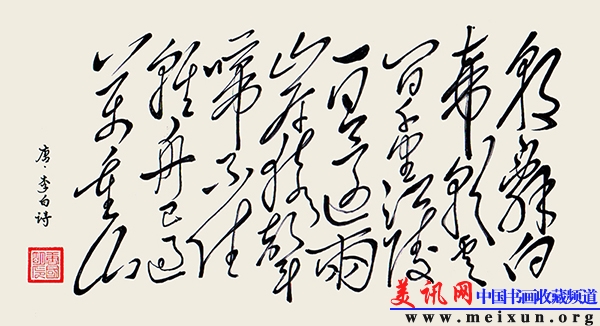 朝辭白
帝彩雲
间千里江陵
一日還兩
岸猿聲
啼不住
輕舟已過
萬重山
唐·李白诗
美讯网 中国书画收藏频道
www.meixun.org